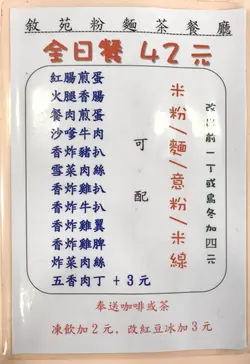 敘苑粉麵茶餐廳
全日餐 42元
紅腸煎蛋
火腿香腸
餐肉煎蛋
沙爹牛肉
香炸豬扒
雪菜肉絲
香炸雞扒
香炸魚柳
香炸雞翼
香炸雞脾
炸菜肉絲
五香肉丁 +3元
可配
米粉/麵/意粉/米線
改出前一丁或烏冬加四元
奉送咖啡或茶
凍飲加2元，改紅豆冰加3元